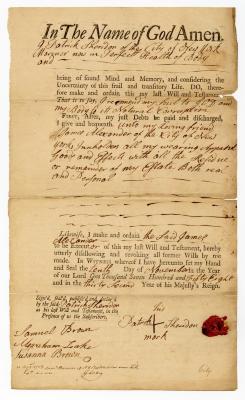 In The Name of God Amen.
I Patrick Sheridon of the City of New York
now in Perfect Health of Body
and
being of sound Mind and Memory, and considering the
Uncertainty of this frail and transitory Life, DO, there-
fore make and ordain this my last Will and Testament
That is to say, First
my Body to its
First, After, my just Debts be paid and discharged,
I give and bequeath unto my loving friend
James Alexander of the City of New
York Innholder all my wearing Apparel
Goods and Effects with all the Residue
or remainder of my Estate Both real
and Personal
Likewise, I make and ordain the said James
Alexander
to be Executor of this my last Will and Testament, hereby
utterly disallowing and revoking all former Wills by me
made. In Witness whereof I have hereunto set my Hand
and Seal the tenth Day of November the Year
of our Lord One Thousand Seven Hundred and Fifty Eight
and in the thirty Second Year of his Majesty's Reign.
Sign'd, Seal'd, publish'd and declar'd
by the said Patrick Sheridon
as his last Will and Testament, in the
Presence of us the Subscribers,
his
Patrick Sheridon
mark
Samuel Brown
Abraham Leake
Susanna Brown